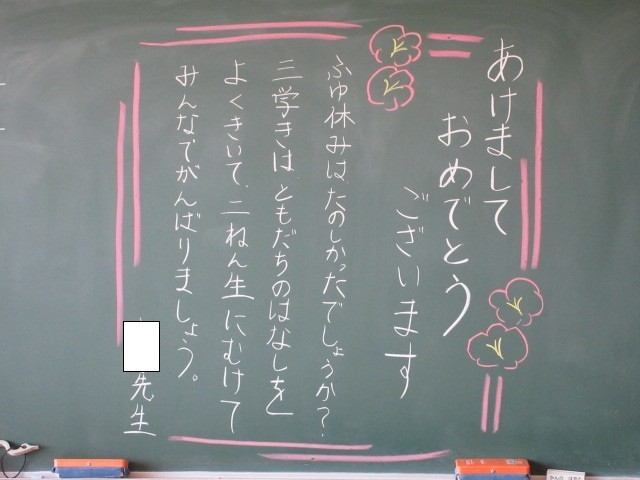 あけまして
おめでとう
ございます
ふゆ休みはたのしかったでしょうか？
三学きは、ともだちのはなしを
よくきいて、二ねん生にむけて
みんなでがんばりましょう。
先生